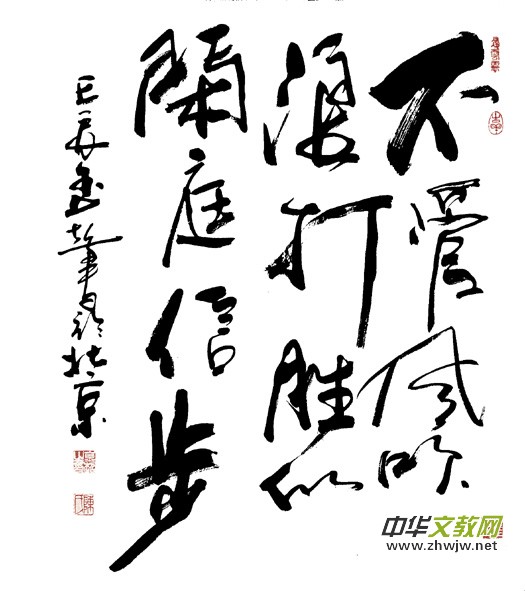 不管风吹
浪打胜似
閑庭信步
北京
中华文教网
www.zhwjw.net